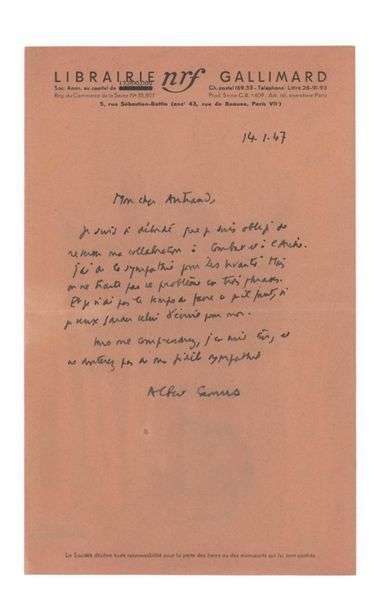 LIBRAIRIE nrf GALLIMARD
Soc. Anon. au capital de
Ch. postal 169.33 - Téléphone Littré 28-91-93
Reg. du Commerce de la Seine
5, rue Sébastien-Bottin (anct 43, rue de Beaune, Paris VIIe)
14.1.47
Mon cher
Je suis si débordé que je suis obligé de
ma collaboration à Combat et à
J'ai de la sympathie pour les Mais
on ne traite pas ce problème en trois phrases.
Et je n'ai pas le temps de faire ce petit si
je veux garder celui d'écrire pour moi.
Vous me comprendrez, j'en suis sûr, et
ne douterez pas de ma fidèle sympathie
Albert Camus
La Société décline toute responsabilité pour la perte des livres ou des manuscrits qui lui sont confiés